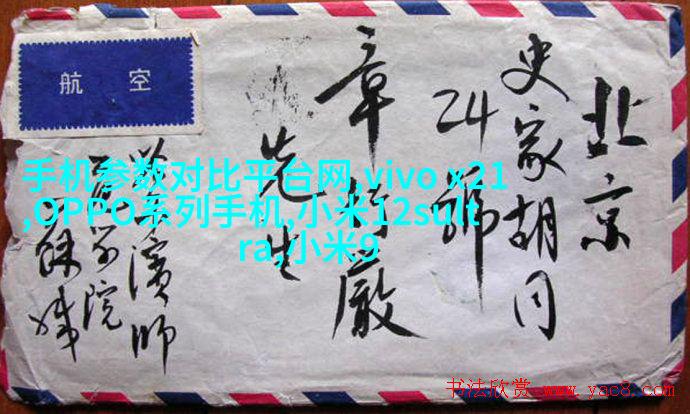 航空
北京
史家胡同
24號
章行嚴
先生
濱師
院
手机参数对比平台网,vivo x21
,OPPO系列手机,小米12sult
ra,小米9
书法欣赏 www.yac8.com